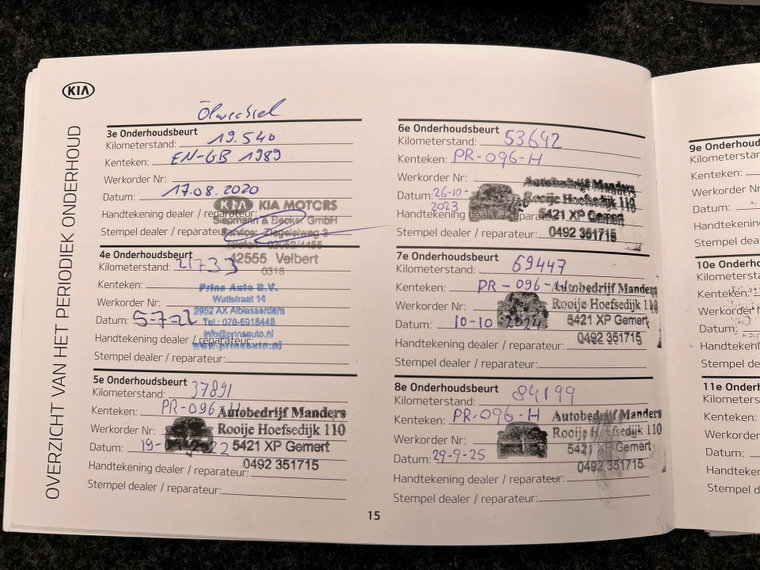 KIA
OVERZICHT VAN HET PERIODIEK ONDERHOUD
Ölwechsel
3e Onderhoudsbeurt
Kilometerstand: 19.540
Kenteken: EN-GB 1989
Werkorder Nr:
Datum: 17.08.2020
Handtekening dealer / reparateur:
Stempel dealer / reparateur:
KIA KIA MOTORS
Siepmann & Becker GmbH
Service: Ziegeleiweg 3
Telefon: 02052/4455
42555 Velbert
0318
4e Onderhoudsbeurt
Kilometerstand: 21733
Kenteken:
Werkorder Nr:
Datum: 5-7-22
Handtekening dealer / reparateur:
Stempel dealer / reparateur:
Prins Auto B.V.
Wattstraat 14
2952 AX Alblasserdam
Tel.: 078-6918448
info@prinsauto.nl
www.prinsauto.nl
5e Onderhoudsbeurt
Kilometerstand: 37891
Kenteken: PR-096-H
Werkorder Nr:
Datum: 19-
Handtekening dealer / reparateur:
Stempel dealer / reparateur:
Autobedrijf Manders
Rooije Hoefsedijk 110
5421 XP Gemert
0492 351715
6e Onderhoudsbeurt
Kilometerstand: 53642
Kenteken: PR-096-H
Werkorder Nr:
Datum: 26-10-2023
Handtekening dealer / reparateur:
Stempel dealer / reparateur:
Autobedrijf Manders
Rooije Hoefsedijk 110
5421 XP Gemert
0492 351715
7e Onderhoudsbeurt
Kilometerstand: 69447
Kenteken: PR-096-H
Werkorder Nr:
Datum: 10-10-2024
Handtekening dealer / reparateur:
Stempel dealer / reparateur:
Autobedrijf Manders
Rooije Hoefsedijk 110
5421 XP Gemert
0492 351715
8e Onderhoudsbeurt
Kilometerstand: 84199
Kenteken: PR-096-H
Werkorder Nr:
Datum: 29-9-25
Handtekening dealer / reparateur:
Stempel dealer / reparateur:
Autobedrijf Manders
Rooije Hoefsedijk 110
5421 XP Gemert
0492 351715
15
9e Onderhoud
Kilometerstan
Kenteken:
Werkorder Nr:
Datum:
Handtekening
Stempel deal
10e Onder
Kilometerst
Kenteken:
Werkorder
Datum:
Handteken
Stempel de
11e Onder
Kilometers
Kenteken:
Werkorde
Datum:
Handteke
Stempel